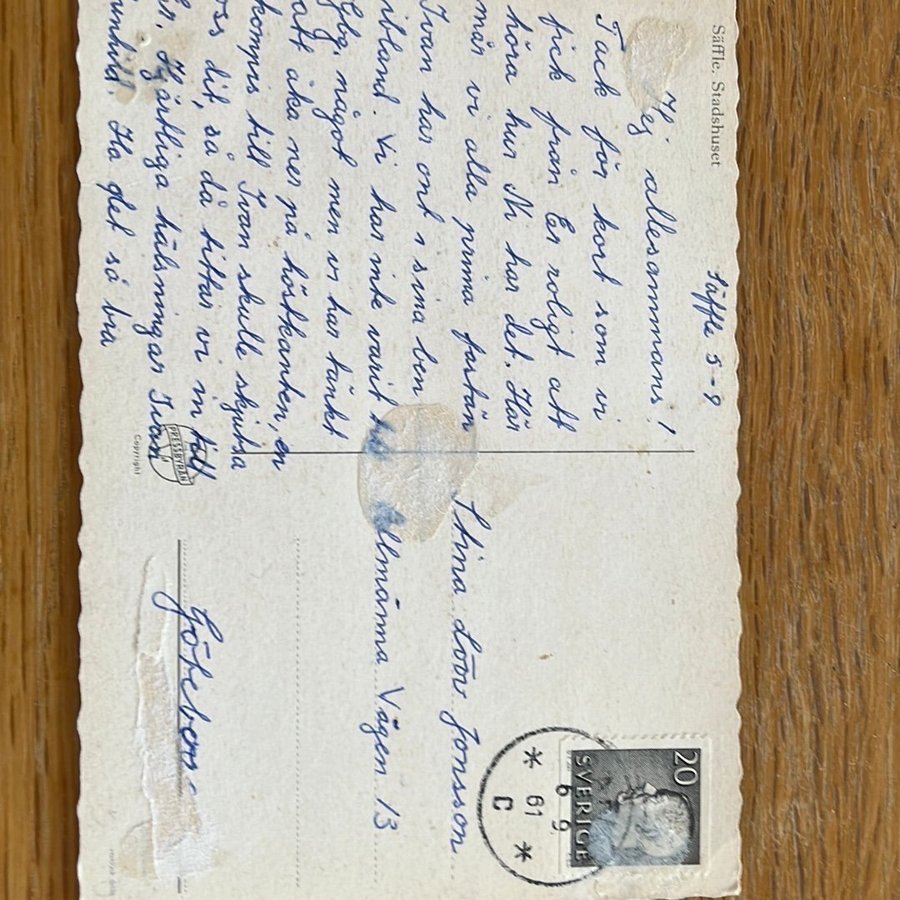 Säffle. Stadshuset
Säffle 5-9
Hej allesammans!
Tack för kort som vi
fick från Er roligt att
höra hur Ni har det. Här
mår vi alla prima fastän
Ivan har ont i sina ben
ibland. Vi har inte varit till
Gbg. något men vi har tänkt
att åka ner på höstkanten, en
kompis till Ivan skulle skjutsa
oss dit, så då tittar vi in till
Er. Hjärtliga hälsningar Ivan
Ha det så bra
PRESSBYRÅN
Copyright
Stina Lööv Jonsson
Allmänna Vägen 13
Göteborg
20
SVERIGE
6 9
61
C